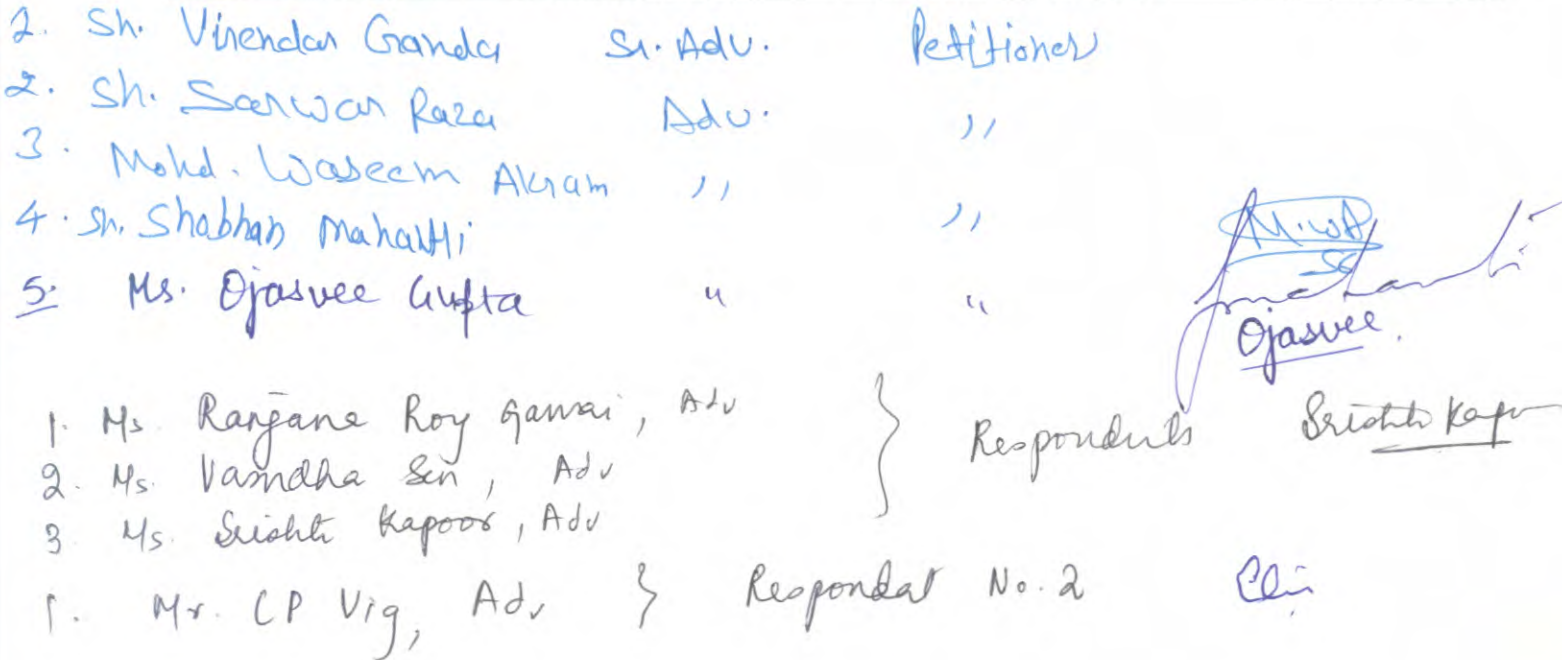 1. Sh. Virendar Ganda Sr. Adv. Petitioner
2. Sh. Sarwar Raza Adv. ,,
3. Mohd. Waseem Akram ,, ,,
4. Sh. Shabhan Mahanti
M.WA
5. Ms. Ojasvee Gupta " "
Ojasvee.
1. Ms. Ranjana Roy Gawai, Adv } Respondents Srishti Kapoor
2. Ms. Vasudha Sen, Adv
3. Ms. Srishti Kapoor, Adv
1. Mr. CP Vig, Adv } Respondat No. 2